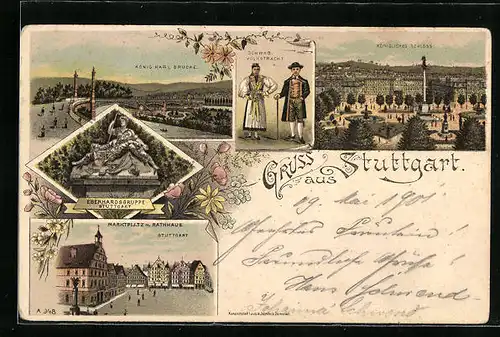 KÖNIG KARL BRÜCKE.
SCHWÄB.
VOLKSTRACHT
KÖNIGLICHES SCHLOSS
EBERHARDSGRUPPE
STUTTGART
Gruss aus Stuttgart.
MARKTPLATZ M. RATHHAUS
STUTTGART
09. Mai 1901
Freundliche Grüße!
Hans
Johanna
A 348